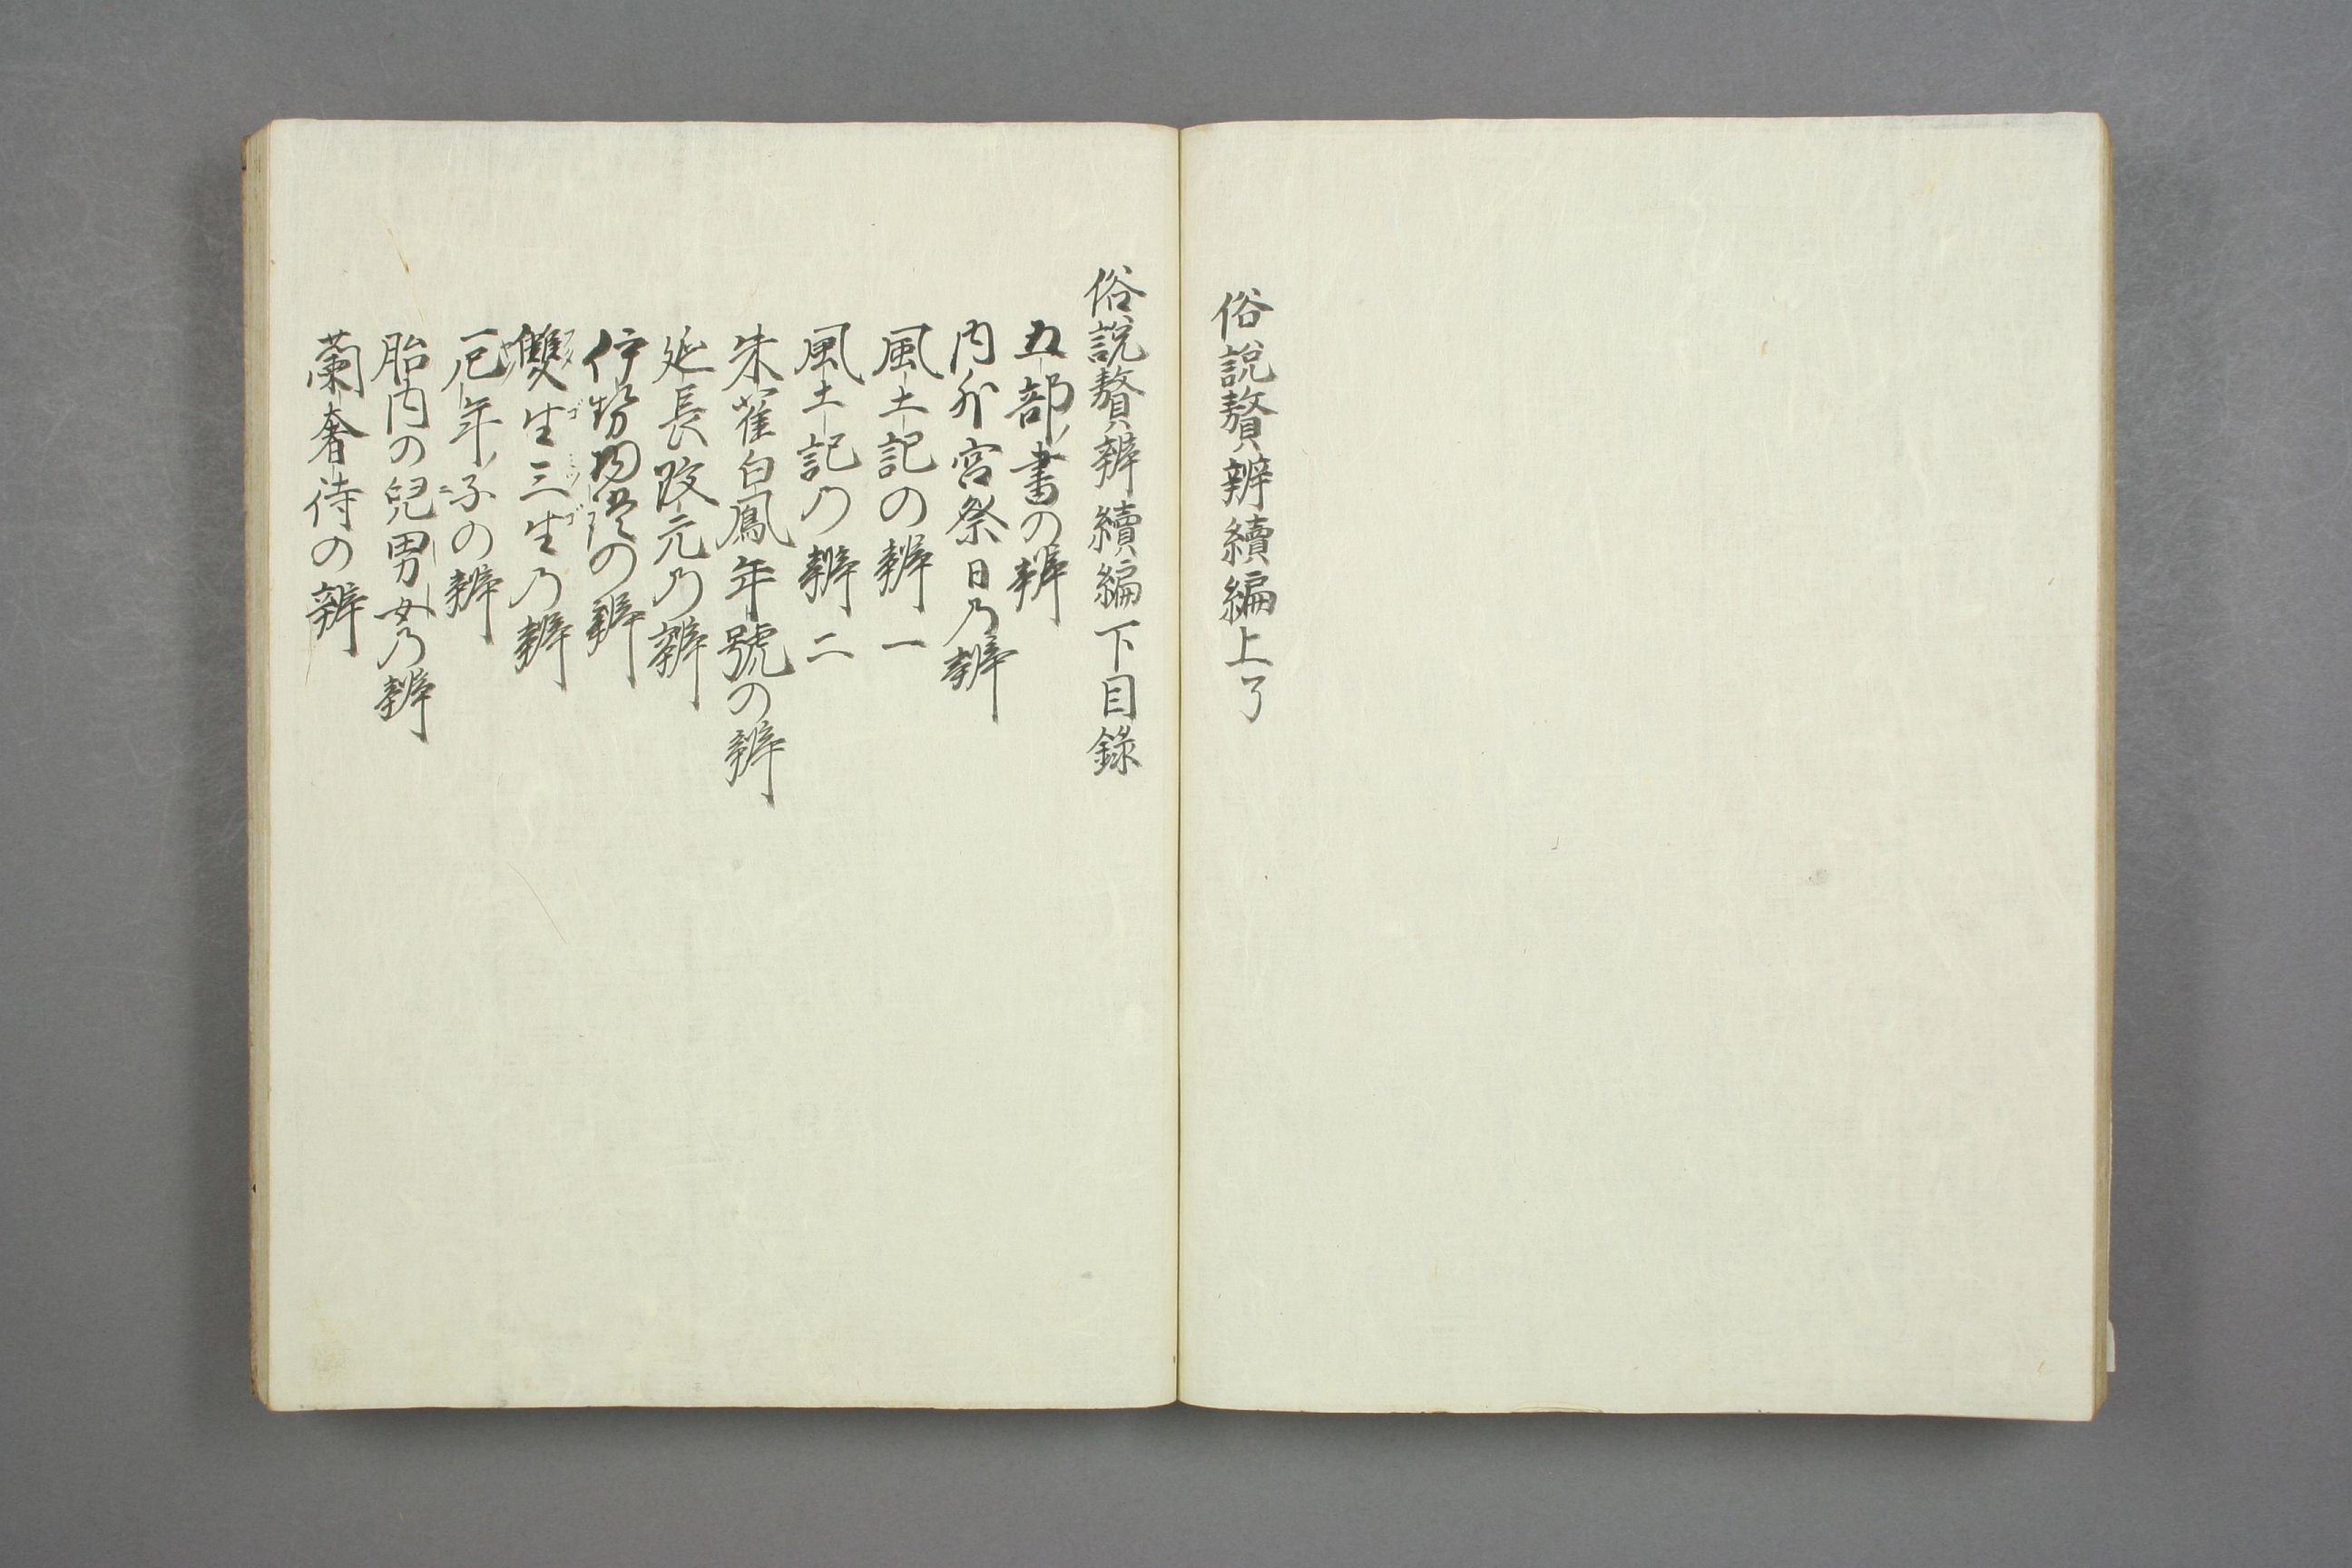 俗說贅辨續編上了
俗說贅辨續編下目錄
五部ノ書の辨
内外宮祭日乃辨
風土記の辨一
風土記乃辨二
朱雀白鳳年號の辨
延長改元乃辨
伊勢物語の辨
雙生三生乃辨
厄年ノ子の辨
胎内の兒男女乃辨
蘭奢待の辨